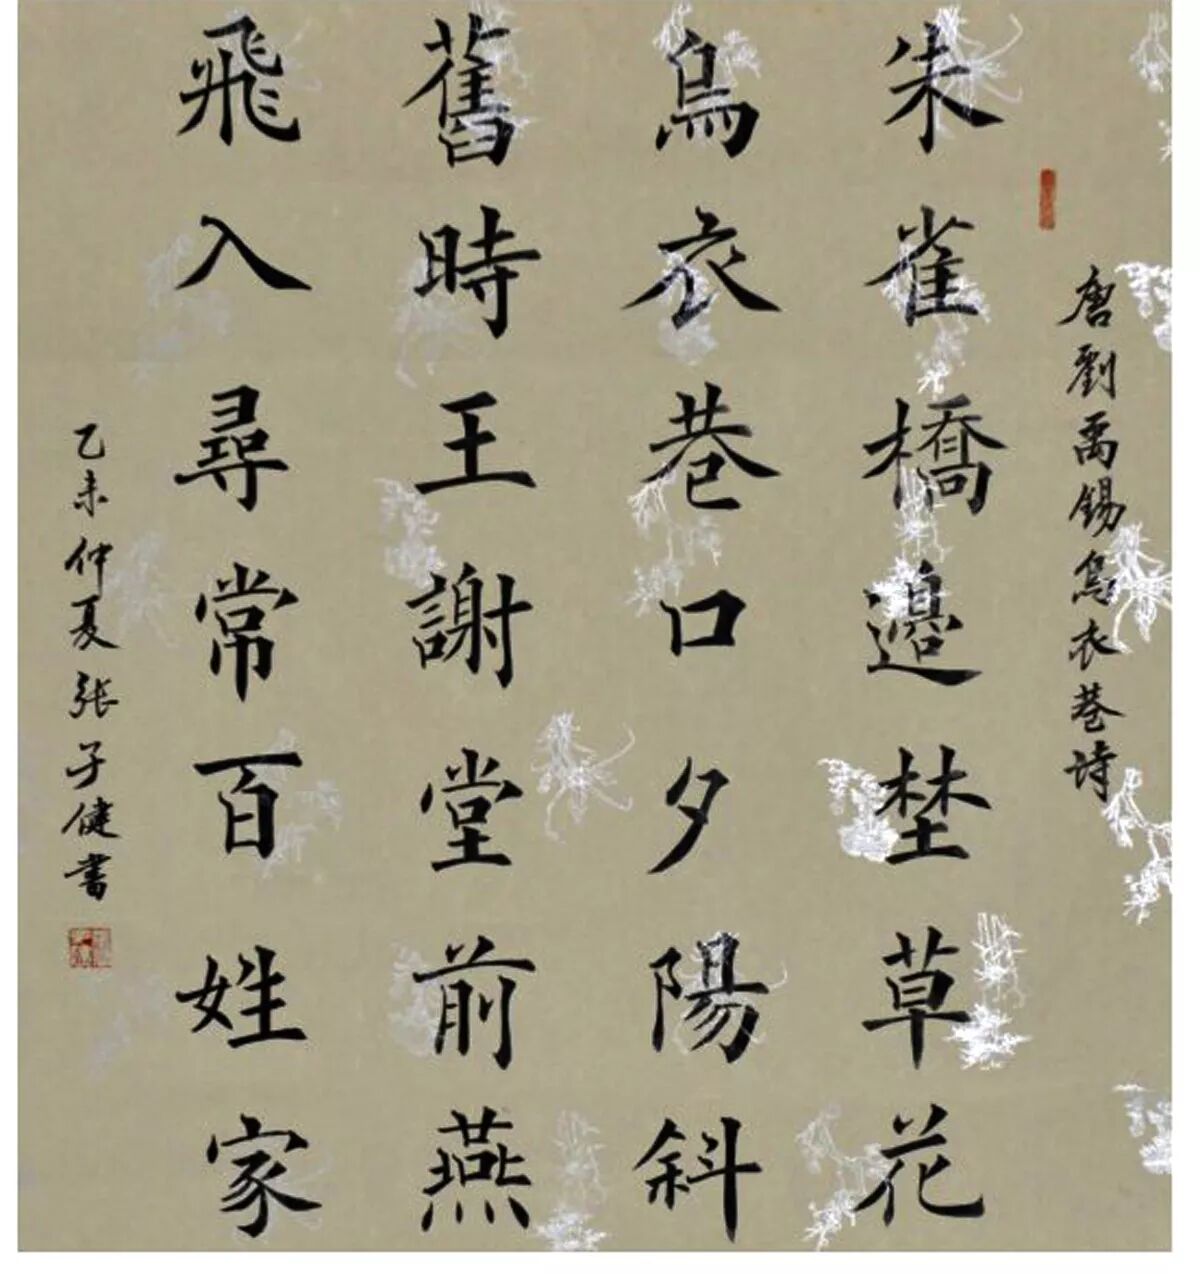 唐劉禹錫烏衣巷詩
朱雀橋邊埜草花
烏衣巷口夕陽斜
舊時王謝堂前燕
飛入尋常百姓家
乙未仲夏張子健書